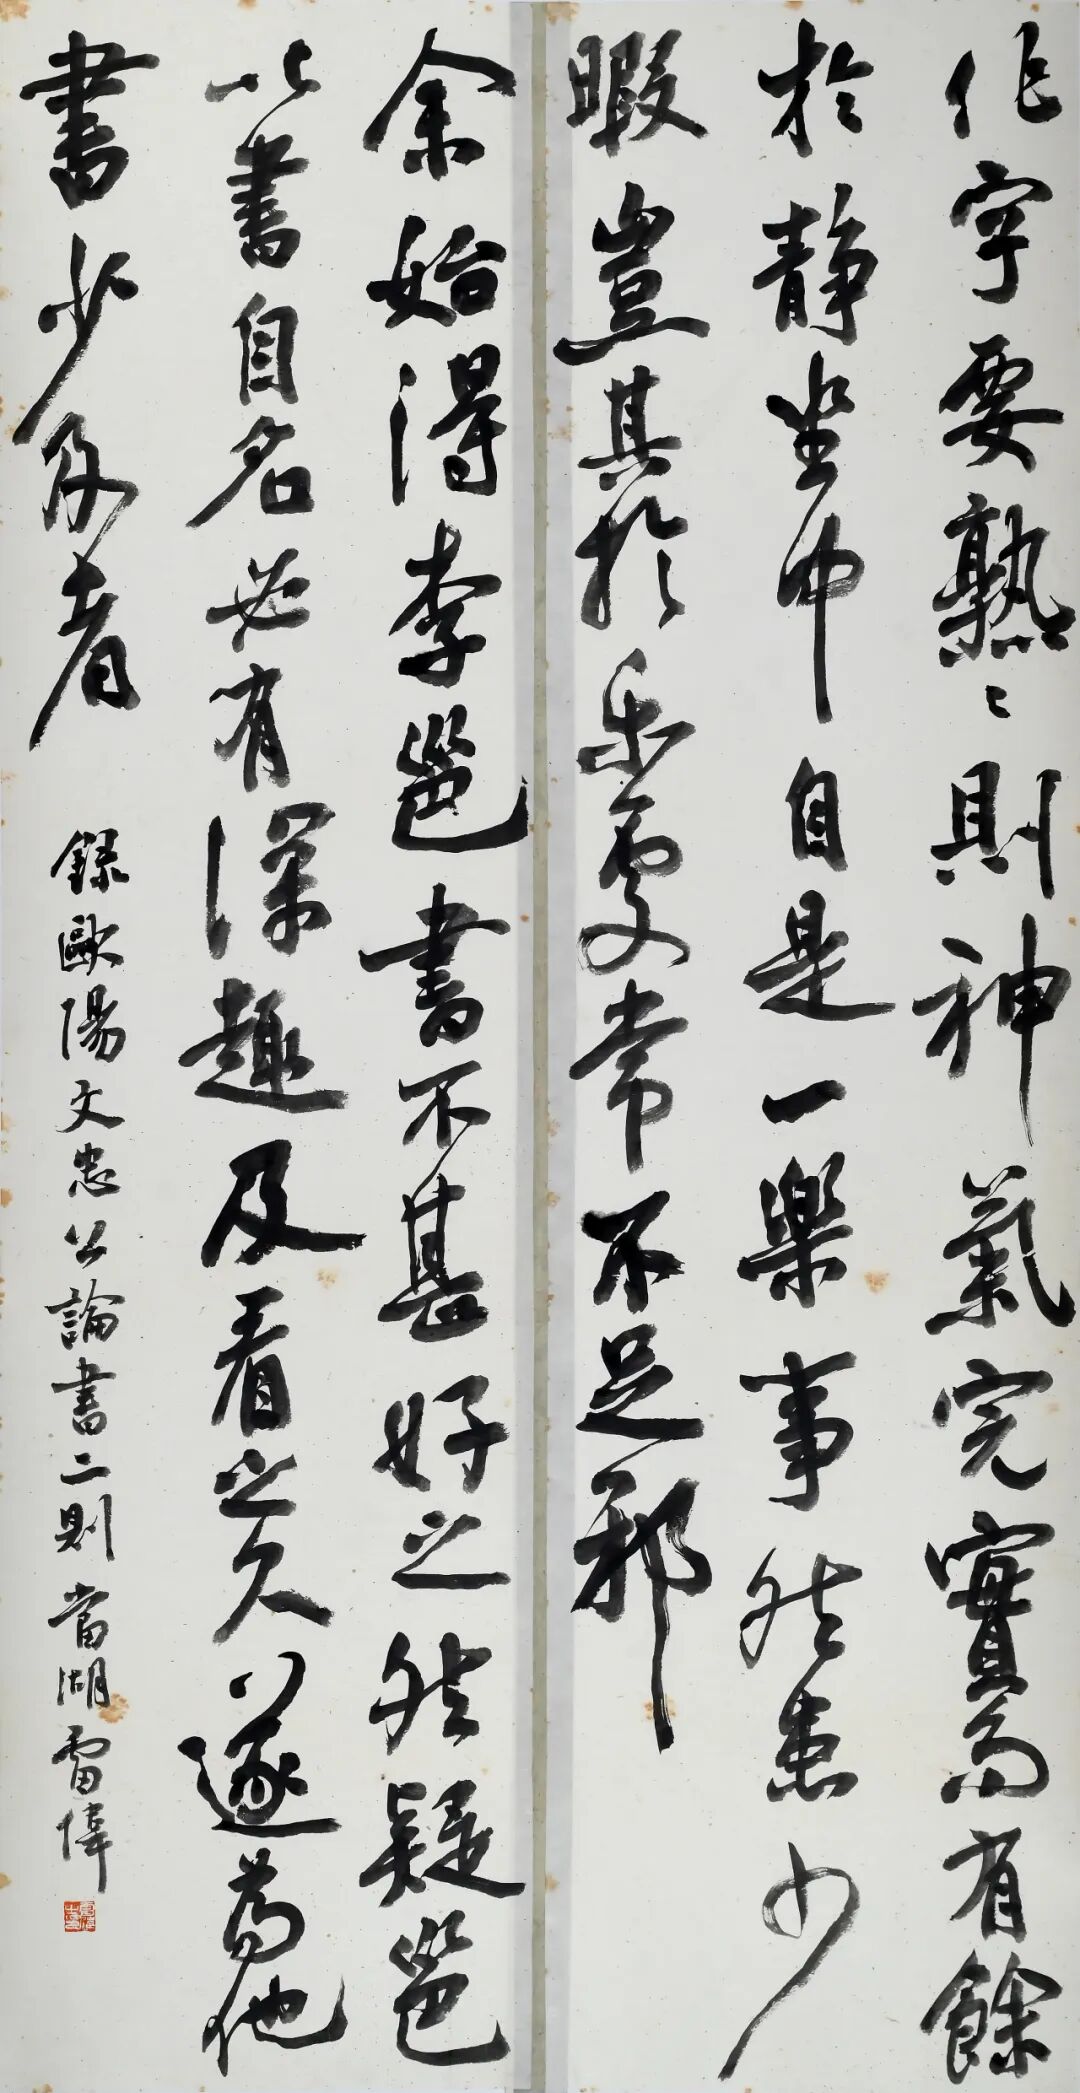 作字要熟〻則神氣完實而有餘
於靜坐中自是一樂事然患少
暇豈其於樂處常不足邪
余始得李邕書不甚好之然疑邕
以書自名必有深趣及看之久遂為他
書少及者
錄歐陽文忠公論書二則 當湖雷偉